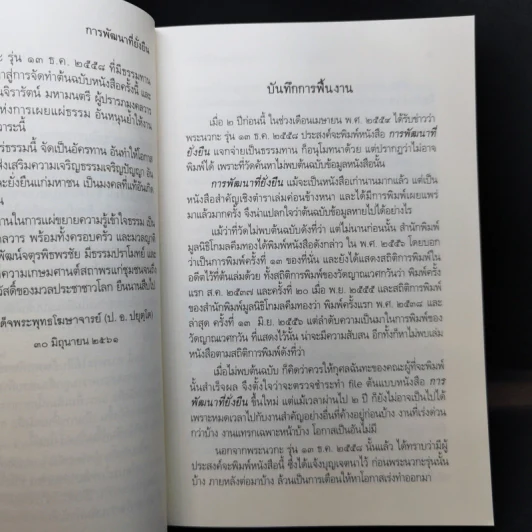 การพัฒนาที่ยั่งยืน
ะ รุ่น ๑๓ ธ.ค. ๒๕๕๘ ที่มีธรรมทาน
าสู่การจัดทำต้นฉบับหนังสือครั้งนี้ และ
นจิรารัตน์ มหามนตรี ผู้ปรารภมงคลวาร
ห่งการเผยแผ่ธรรม อันหนุนย้ำให้งาน
าระนี้
ร่ธรรมนี้ จัดเป็นอัครทาน อันทำให้โอกาส
ส่งเสริมความเจริญธรรมเจริญปัญญา อัน
ะยั่งยืนแก่มหาชน เป็นมงคลที่แท้อันเกิด
านในการแผ่ขยายความรู้เข้าใจธรรม เป็น
ลวาร พร้อมทั้งครอบครัว และมวลญาติ
พัฒน์จตุรพิธพรชัย มีธรรมปราโมทย์ และ
ความเกษมศานต์สถาพรแก่ชุมชนจนถึง
วัสดิ์ของมวลประชาชาวโลก ยืนนานสืบไป
ด็จพระพุทธโฆษาจารย์ (ป. อ. ปยุตฺโต)
๓๐ มิถุนายน ๒๕๖๑
บันทึกการฟื้นงาน
เมื่อ ๒ ปีก่อนนี้ ในช่วงเดือนเมษายน พ.ศ. ๒๕๕๙ ได้รับข่าวว่า
พระนวกะ รุ่น ๑๓ ธ.ค. ๒๕๕๘ ประสงค์จะพิมพ์หนังสือ การพัฒนาที่
ยั่งยืน แจกจ่ายเป็นธรรมทาน ก็อนุโมทนาด้วย แต่ปรากฏว่าไม่อาจ
พิมพ์ได้ เพราะที่วัดค้นหาไม่พบต้นฉบับข้อมูลหนังสือนั้น
การพัฒนาที่ยั่งยืน แม้จะเป็นหนังสือเก่านานมาแล้ว แต่เป็น
หนังสือสำคัญเชิงตำราเล่มค่อนข้างหนา และได้มีการพิมพ์เผยแพร่
มาแล้วมากครั้ง จึงน่าแปลกใจว่าต้นฉบับข้อมูลหายไปได้อย่างไร
แม้ว่าที่วัดไม่พบต้นฉบับดังที่ว่า แต่ไม่นานก่อนนั้น สำนักพิมพ์
มูลนิธิโกมลคีมทองได้พิมพ์หนังสือดังกล่าว ใน พ.ศ. ๒๕๕๖ โดยบอก
ว่าเป็นการพิมพ์ครั้งที่ ๑๓ ของที่นั่น และยังได้แสดงสถิติการพิมพ์ใน
อดีตไว้ที่ต้นเล่มด้วย ทั้งสถิติการพิมพ์ของวัดญาณเวศกวันว่า พิมพ์ครั้ง
แรก ส.ค. ๒๕๓๗ และครั้งที่ ๒๐ เมื่อ พ.ย. ๒๕๕๕ และสถิติการพิมพ์
ของสำนักพิมพ์มูลนิธิโกมลคีมทองว่า พิมพ์ครั้งแรก พ.ศ. ๒๕๓๙ และ
ล่าสุด ครั้งที่ ๑๓ มิ.ย. ๒๕๕๖ แต่ลำดับความเป็นมาในการพิมพ์ของ
วัดญาณเวศกวัน ที่แสดงไว้นั้น น่าจะมีความสับสน อีกทั้งก็หาไม่พบเล่ม
หนังสือตามสถิติการพิมพ์ดังที่ว่า
เมื่อไม่พบต้นฉบับ ก็คิดว่าควรให้กุศลฉันทะของคณะผู้ที่จะพิมพ์
นั้นสำเร็จผล จึงตั้งใจว่าจะตรวจชำระทำ file ต้นแบบหนังสือ การ
พัฒนาที่ยั่งยืน ขึ้นใหม่ แต่แม้เวลาผ่านไป ๒ ปี ก็ยังไม่อาจเป็นไปได้
เพราะหมดเวลาไปกับงานสำคัญอย่างอื่นที่ค้างอยู่ก่อนบ้าง งานที่เร่งด่วน
กว่าบ้าง งานแทรกเฉพาะหน้าบ้าง โอกาสเป็นอันไม่มี
นอกจากพระนวกะ รุ่น ๑๓ ธ.ค. ๒๕๕๘ นั้นแล้ว ได้ทราบว่ามีผู้
ประสงค์จะพิมพ์หนังสือนี้ ซึ่งได้แจ้งบุญเจตนาไว้ ก่อนพระนวกะรุ่นนั้น
บ้าง ภายหลังต่อมาบ้าง ล้วนเป็นการเตือนให้หาโอกาสเร่งทำออกมา